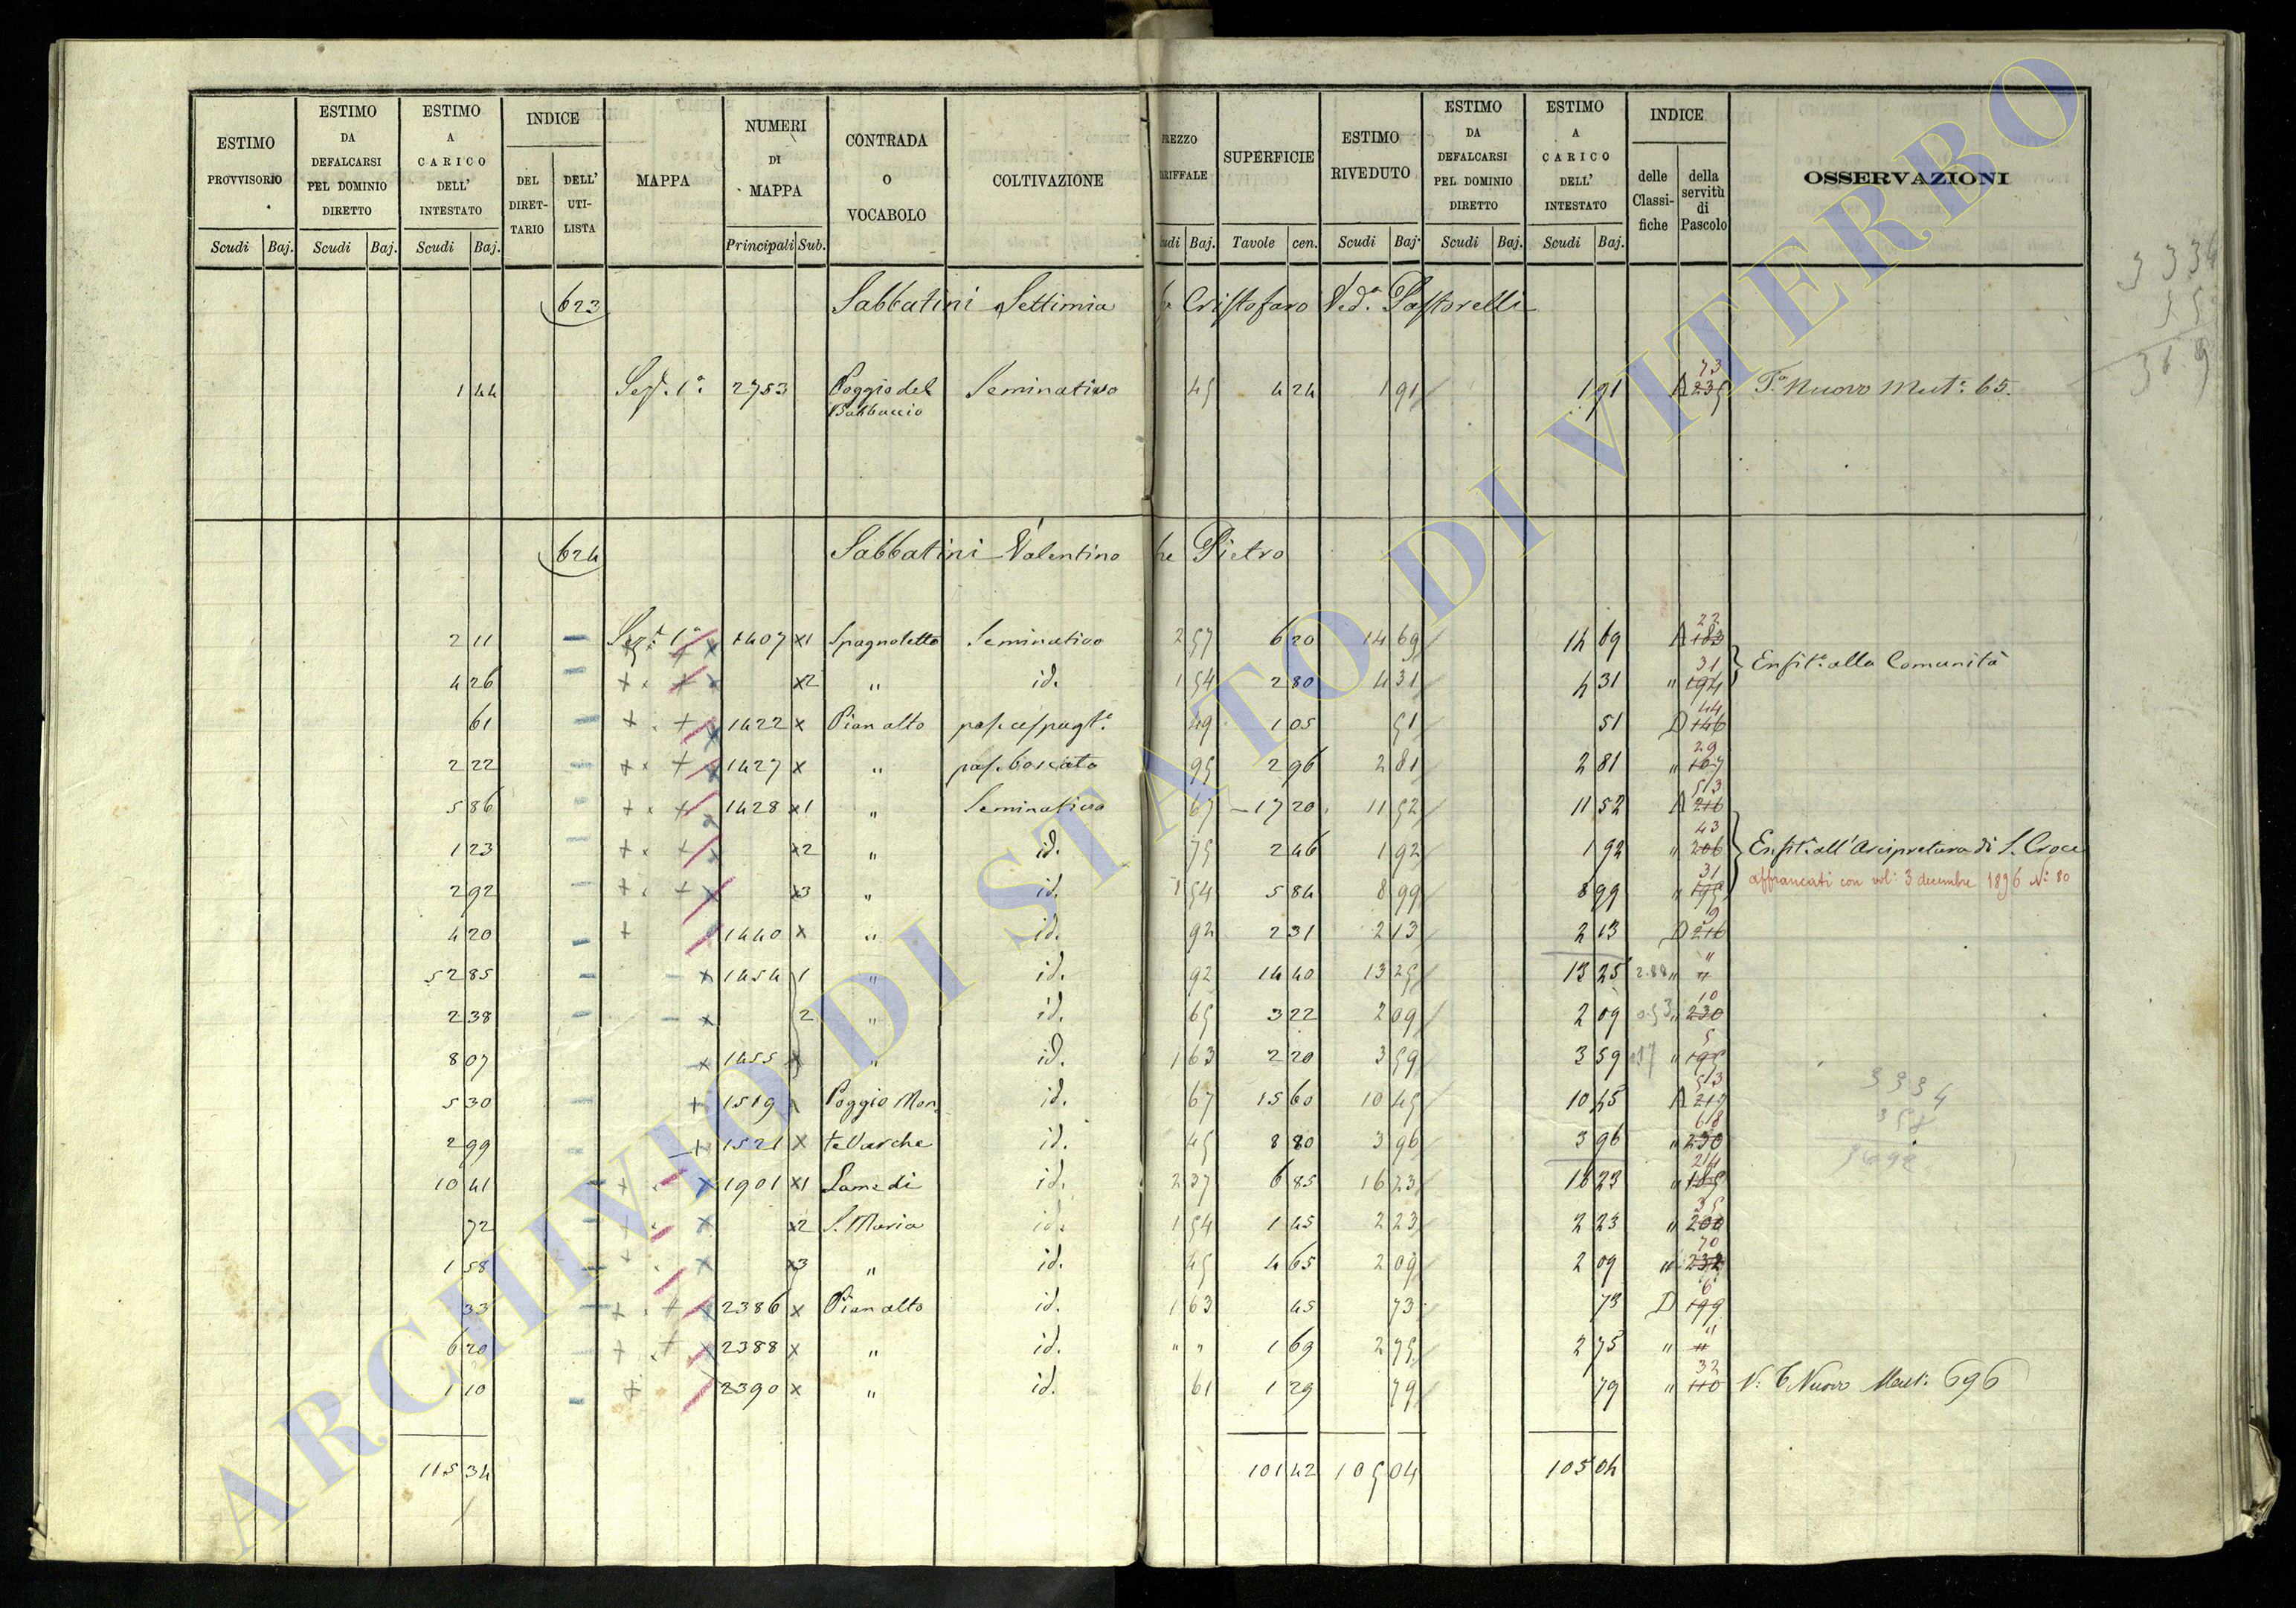 ESTIMO PROVVISORIO | ESTIMO DA DEFALCARSI PEL DOMINIO DIRETTO | ESTIMO A CARICO DELL' INTESTATO | INDICE | MAPPA | NUMERI DI MAPPA | CONTRADA O VOCABOLO | COLTIVAZIONE | SUPERFICIE | ESTIMO RIVEDUTO | ESTIMO DA DEFALCARSI PEL DOMINIO DIRETTO | ESTIMO A CARICO DELL' INTESTATO | INDICE | OSSERVAZIONI
DEL DIRETTARIO | DELL' UTILISTA | delle Classifiche | della servitù di Pascolo
Scudi | Baj. | Scudi | Baj. | Scudi | Baj. | Principali | Sub. | Baj. | Tavole | cen. | Scudi | Baj. | Scudi | Baj. | Scudi | Baj.
623 Sabbatini Settimia Cristofaro Ved.ª Pastorelli
1 44 | Sez. 1ª | 2753 | Poggio del | Seminativo | 45 | 4 24 | 1 91 | 1 91 | A 235 73 | Nuovo Mut: 65.
624 Sabbatini Valentino Pietro
2 11 | Sez. 1ª | 1407 x1 | Spagnoletto | Seminativo | 2 37 | 6 20 | 14 69 | 14 69 | A 183 22
4 26 | x2 | " | id. | 1 54 | 2 80 | 4 31 | 4 31 | " 194 31 | Enfit. alla Comunità
61 | 1422 x | Pian alto | 49 | 1 05 | 51 | 51 | D 146 44
2 22 | 1427 x | " | pas. boscato | 95 | 2 96 | 2 81 | 2 81 | " 167 29
5 86 | 1428 x1 | " | Seminativo | 67 | 17 20 | 11 52 | 11 52 | A 216 513
1 23 | x2 | " | id. | 75 | 2 46 | 1 92 | 1 92 | " 206 43 | Enfit. all'Arcipretura di S. Croce
2 92 | x3 | " | id. | 1 54 | 5 84 | 8 99 | 8 99 | " 195 31 | affrancati con vol: 3 decembre 1896 N: 80
4 20 | 1440 x | " | id. | 92 | 2 31 | 2 13 | 2 13 | D 216 9
52 85 | 1454 1 | " | id. | 92 | 14 40 | 13 25 | 13 25 | " "
2 38 | 2 | " | id. | 65 | 3 22 | 2 09 | 2 09 | " 230 10
8 07 | 1455 x | " | id. | 1 63 | 2 20 | 3 59 | 3 59 | " 195 5
5 30 | 1519 | Poggio Mon- | id. | 67 | 15 60 | 10 45 | 10 45 | A 513
2 99 | 1521 x | tevarche | id. | 45 | 8 80 | 3 96 | 3 96 | " 230 68
10 41 | 1901 x1 | Lame di | id. | 2 37 | 6 85 | 16 23 | 16 23 | " 185 214
72 | x2 | S. Maria | id. | 1 54 | 1 45 | 2 23 | 2 23 | " 200 35
1 58 | x3 | " | id. | 45 | 4 65 | 2 09 | 2 09 | " 232 70
33 | 2386 x | Pian alto | id. | 1 63 | 45 | 73 | 73 | D 199 6
6 20 | 2388 x | " | id. | " " | 1 69 | 2 75 | 2 75 | " "
1 10 | 2390 x | " | id. | 61 | 1 29 | 79 | 79 | " 110 32 | Nuovo Mut: 696
115 34 | 101 42 | 105 04 | 105 04
3334
ARCHIVIO DI STATO DI VITERBO